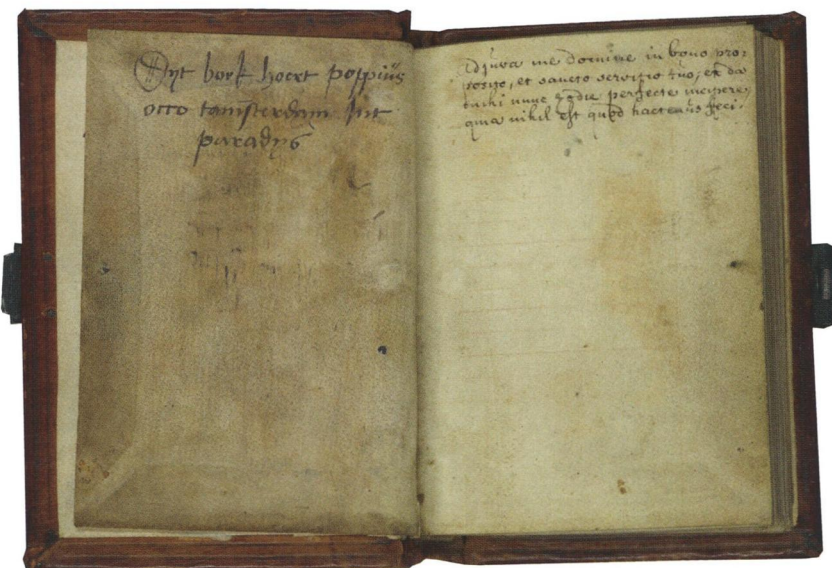 Dyt boek hoert poppiüs
otto tamsterdam int
paradys
Adjuva me domine in bono pro:
posito, et sancto servitio tuo, et da
michi nunc hodie perfecte incipere,
quia nihil est quod hactenus feci.